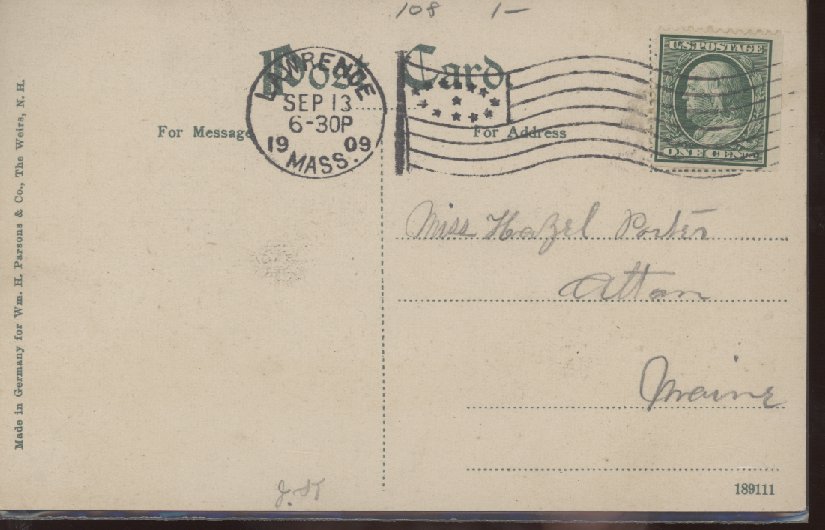 108 1-
Post Card.
LAWRENCE
SEP 13
6-30P
19 09
MASS.
U.S. POSTAGE
ONE CENT
For Message
For Address
Miss Hazel Porter
Alton
Maine
189111
Made in Germany for Wm. H. Parsons & Co., The Weirs, N. H.